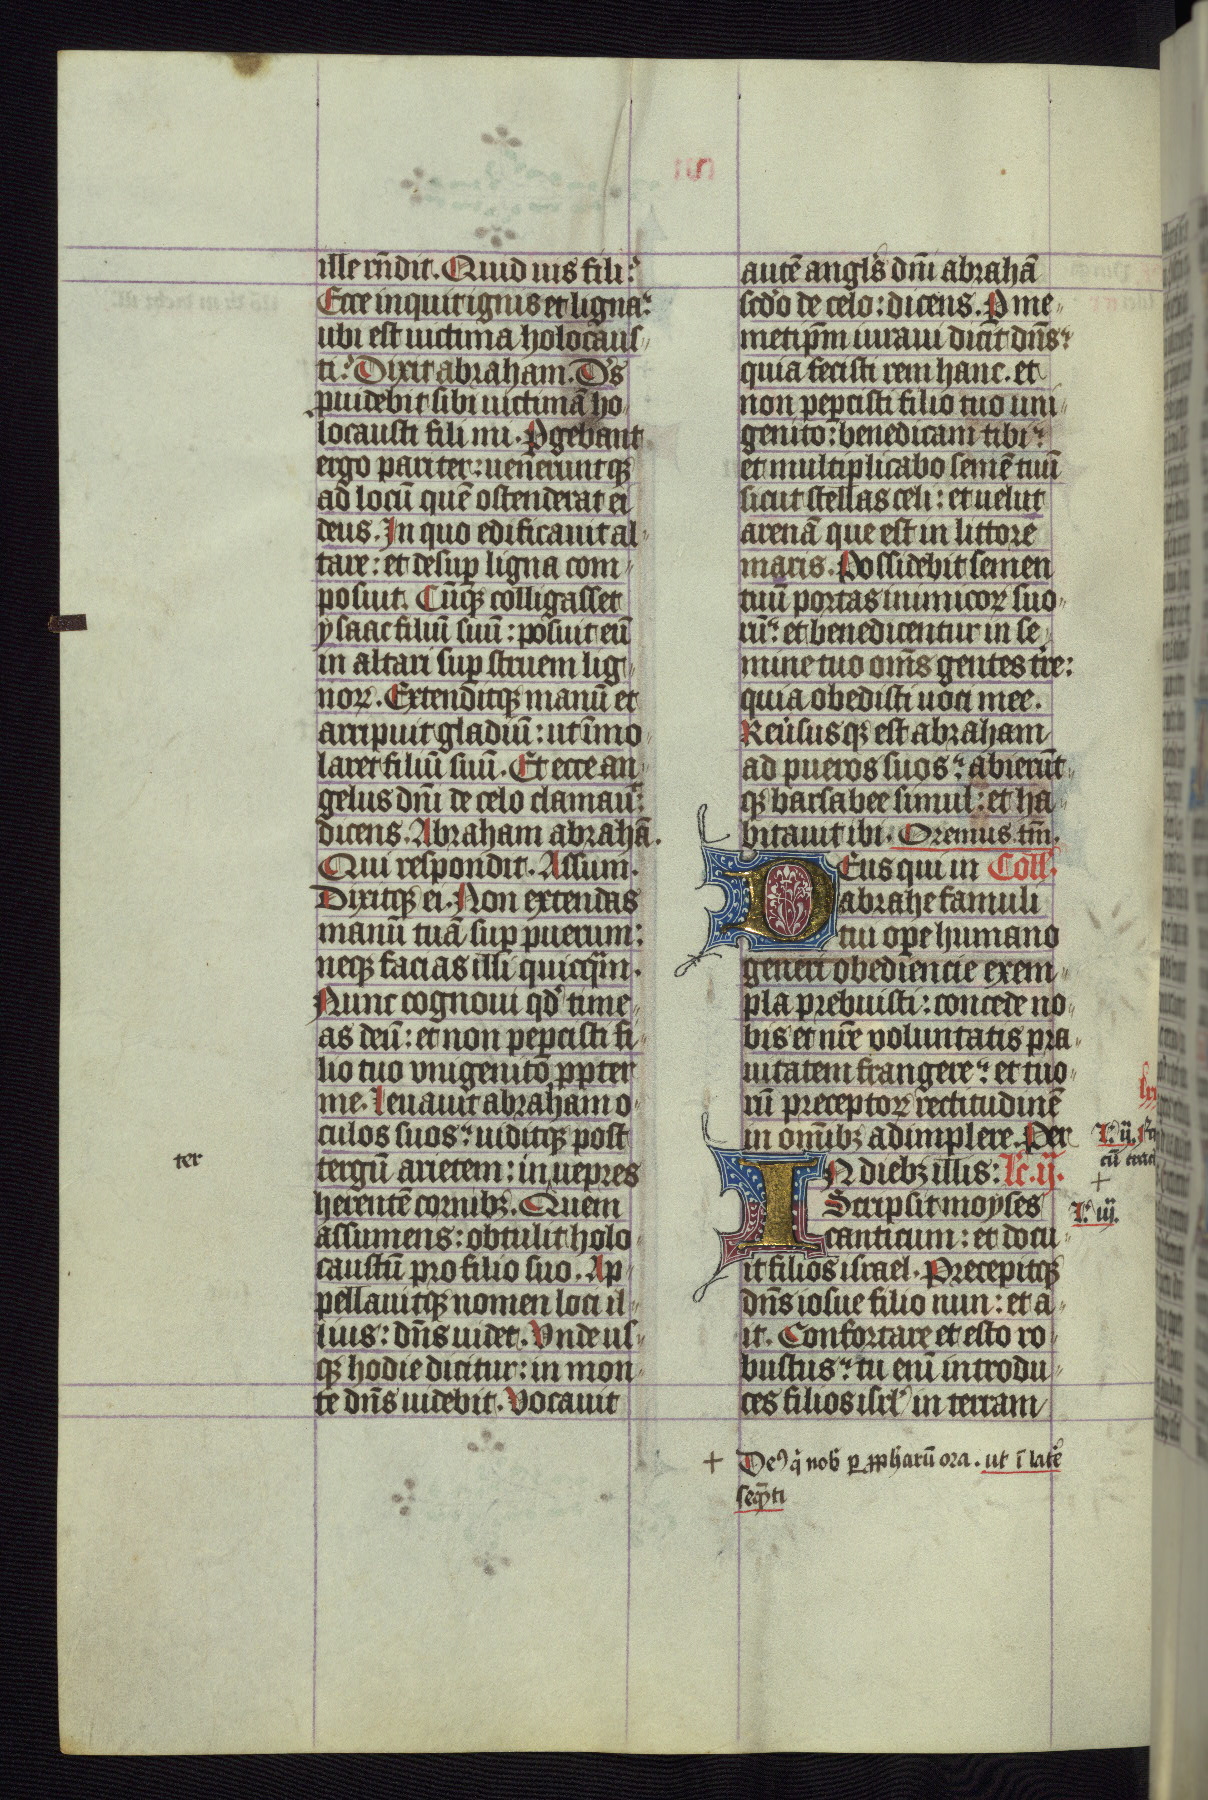 ille rñdit. Quid uis fili?
Ecce inquit ignis et ligna:
ubi est uictima holocaus
ti? Dixit abraham. D's
ꝓuidebit sibi uictimã ho
locausti fili mi. Pgebant
ergo pariter: ueneruntqꝫ
ad locũ quẽ ostenderat ei
deus. In quo edificauit al
tare: et desuꝑ ligna com
posuit. Cũqꝫ colligasset
ysaac filiũ suũ: posuit eũ
in altari suꝑ struem lig
norꝝ. Extenditqꝫ manũ et
arripuit gladiũ: ut ĩmo
laret filiũ suũ. Et ecce an
gelus dñi de celo clamauˀ:
dicens. Abraham abrahã.
Qui respondit. Assum.
Dixitqꝫ ei. Non extendas
manũ tuã suꝑ puerum:
neqꝫ facias illi quicq̃m.
Nunc cognoui qd' time
as deũ: et non peꝑcisti fi
lio tuo vnigenito ꝓpter
me. Leuauit abraham o
culos suos: uiditqꝫ post
tergũ arietem: in uepres
herentẽ cornibꝫ. Quem
assumens: obtulit holo
caustũ pro filio suo. Ap
pellauitqꝫ nomen loci il
lius: dñs uidet. Vnde us
qꝫ hodie dicitur: in mon
te dñs uidebit. Vocauit
ter
autẽ angl's dñi abrahã
scd'o de celo: dicens. P me
metiꝑm iuraui dicit dñs:
quia fecisti rem hanc. et
non peꝑcisti filio tuo uni
genito: benedicam tibi:
et multiplicabo semẽ tuũ
sicut stellas celi: et uelut
arenã que est in littore
maris. Possidebit semen
tuũ portas inimicoꝝ suo
rũ: et benedicentur in se
mine tuo om̃s gentes tr̃e:
quia obedisti uoci mee.
Reu'susqꝫ est abraham
ad pueros suos: abierũt
qꝫ barsabee simul: et ha
bitauit ibi. Oremus tm̃.
Deus qui in Coll'.
abrahe famuli
tui oꝑe humano
generi obediencie exem
pla prebuisti: concede no
bis et nr̃e voluntatis pra
uitatem frangere: et tuo
rũ preceptoꝝ rectitudinẽ
in om̃ibꝫ adimplere. Per
IN diebꝫ illis: Lc̃. ij.
Scripsit moyses
canticum: et docu
it filios israel. Precepitqꝫ
dñs iosue filio nun: et a
it. Confortare et esto ro
bustus: tu enĩ introdu
ces filios isrl' in terram
L. ij.
cũ trac
+
L. iij.
+ De' q̃ nob' ꝑ ꝓph'arũ ora. ut ĩ lat'e
seq̃ti